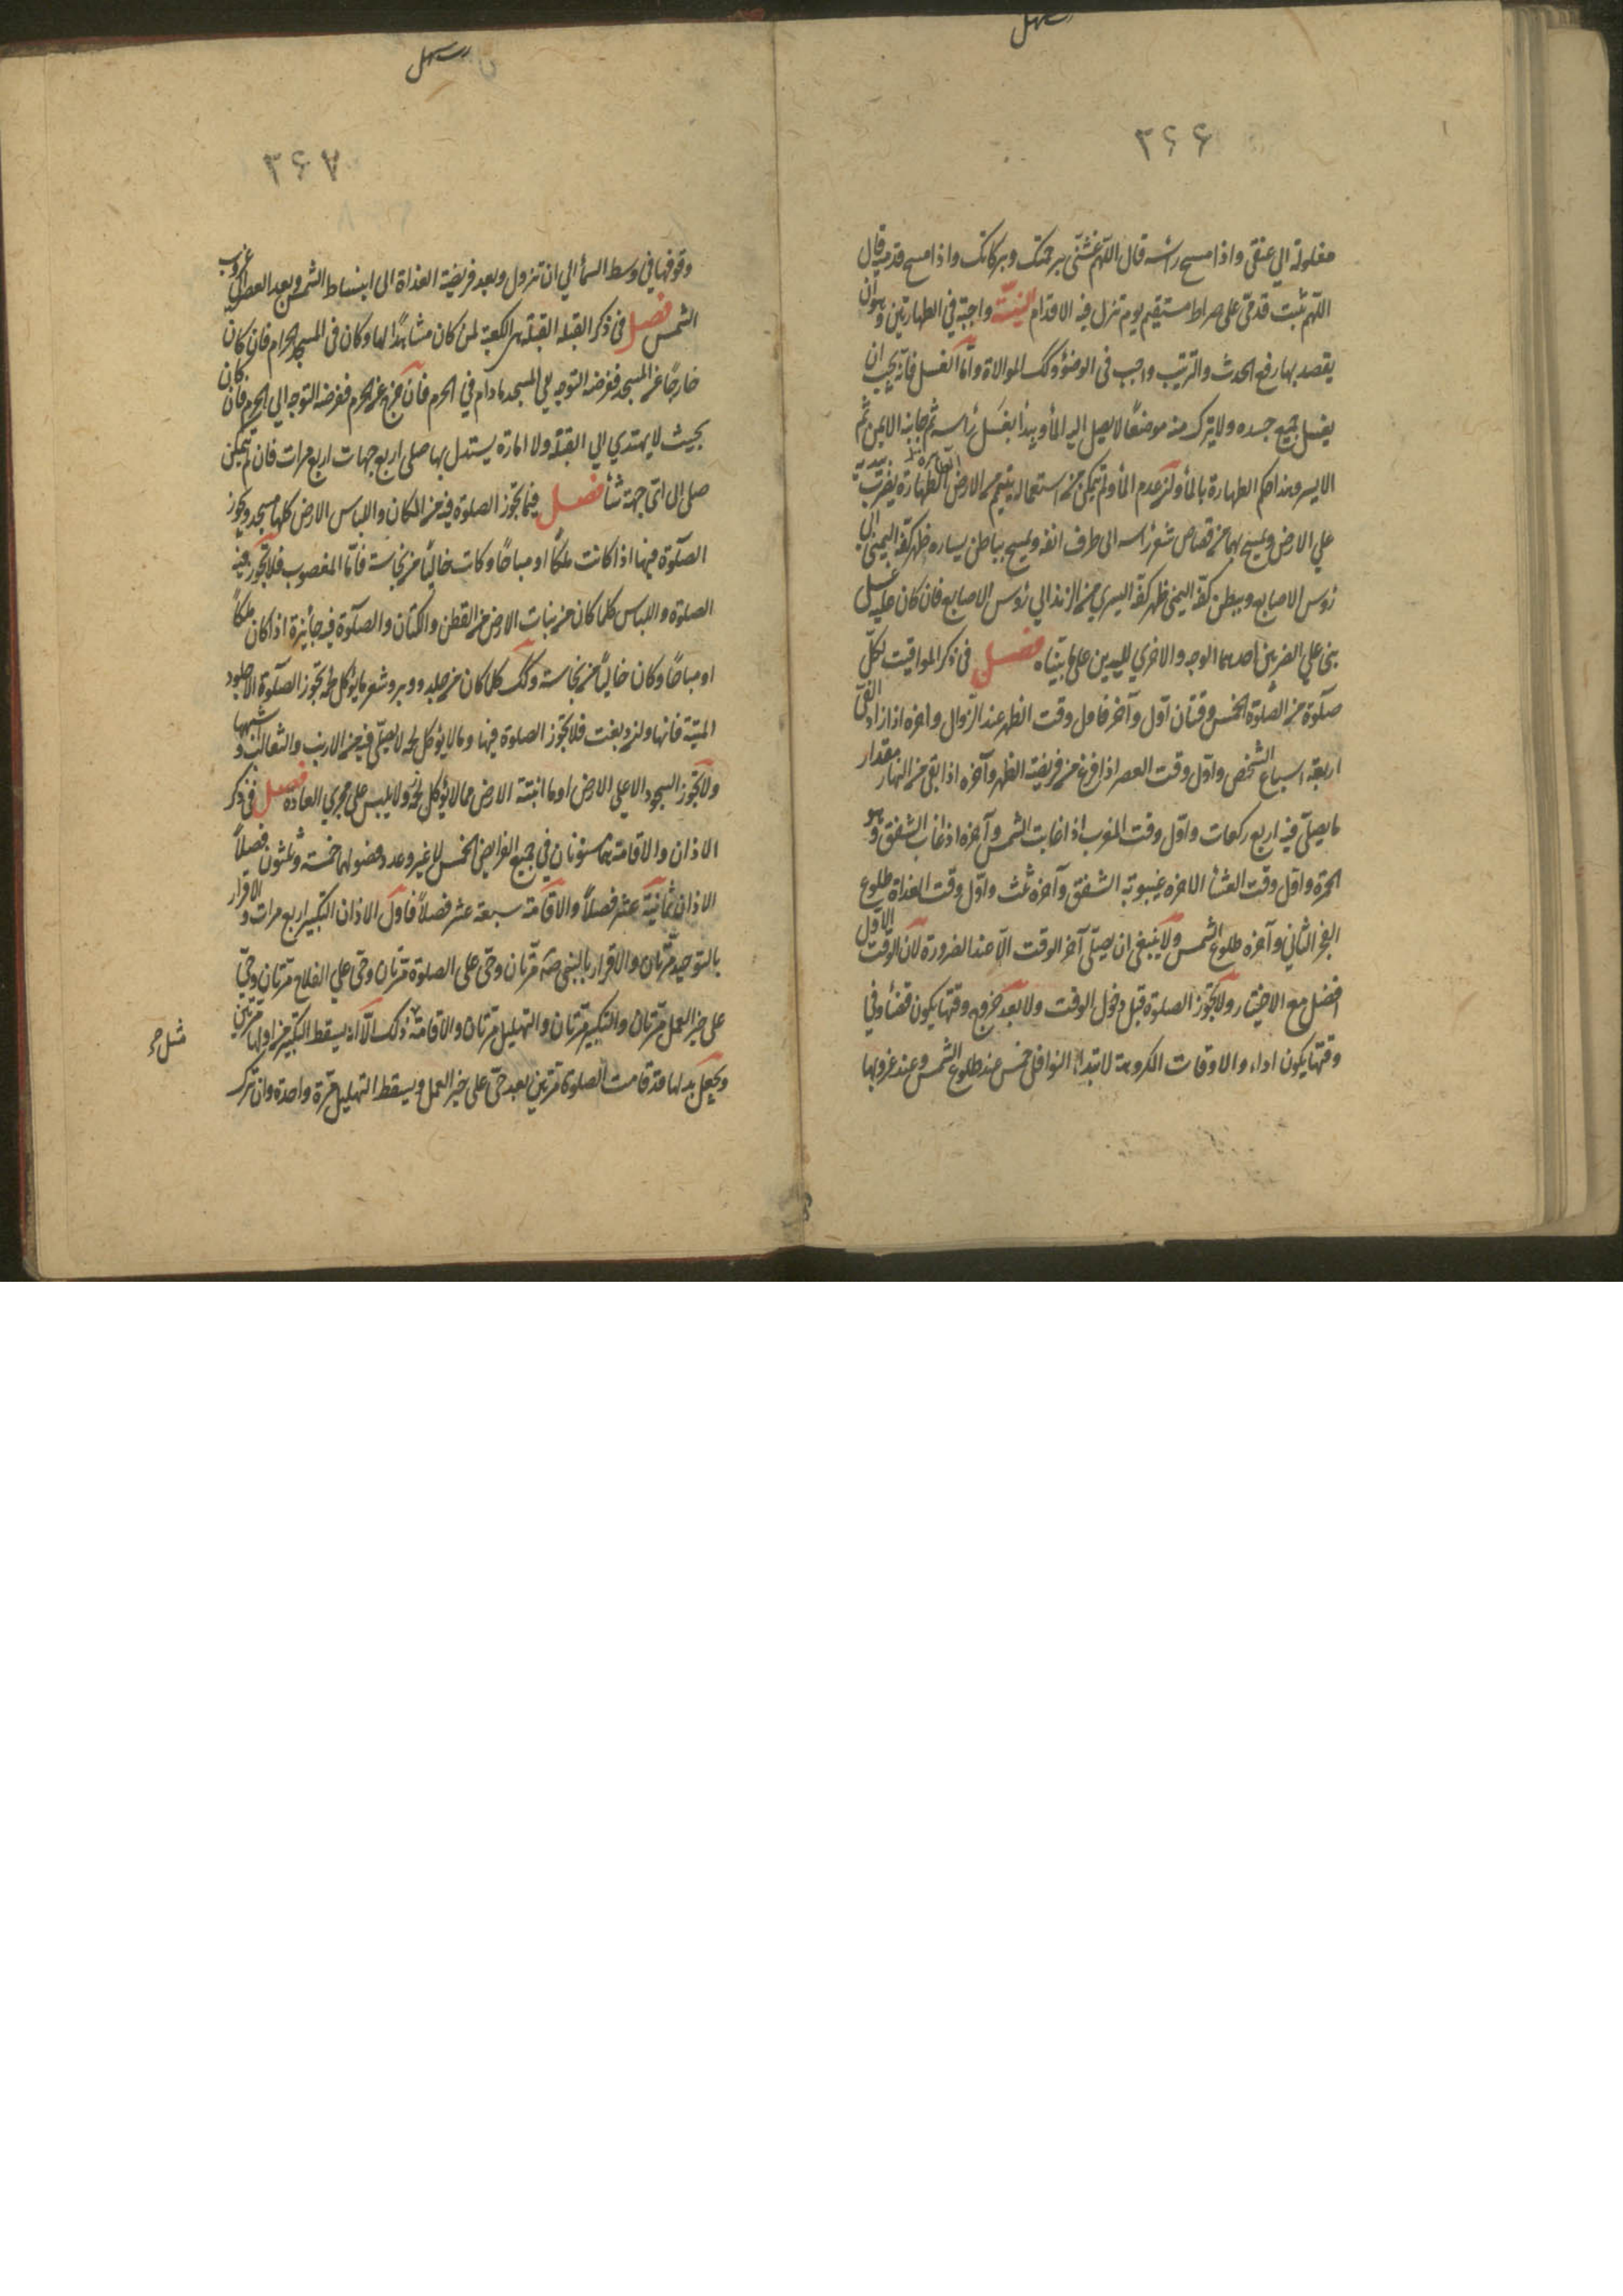 ۳۶۶
مغلولة الي عنقي واذا مسح رأسه قال اللهم غشّني برحمتك وبركاتك واذا مسح قدميه قال
اللّهم ثبت قدميّ علي صراط مستقيم يوم تزل فيه الاقدام النيّة واجبة في الطهارتين وهو ان
يقصد بها رفع الحدث والترتيب واجب في الوضوء وكك الموالاة وامّا الغسل فانه يجب ان
يغسل جميع جسده ولا يترك منه موضعًا لا يصل اليه الماء ويبدأ بغسل رأسه ثم جانبه الايمن ثم
الايسر وهذا حكم الطهارة بالماء ولن عدم الماء ولم يتمكن من استعماله يتيمم من الارض الطهارة يضرب بيديه
علي الارض ويمسح بهما من قصاص شعر رأسه الي طرف انفه ويمسح بباطن يساره ظهر كفه اليمني الي
رؤس الاصابع وببطن كفه اليمني ظهر كفه اليسري من الزند الي رؤس الاصابع فان كان عليه غسل
بني علي الضربين احدهما الوجه والاخري لليدين علي ما بيناه فصل في ذكر المواقيت لكلّ
صلوة من الصلوة الخمس وقتان اوّل وآخر فاول وقت الظهر عند الزوال واخره اذا زاد الفئ
اربعة اسباع الشخص واوّل وقت العصر اذا فرغ من فريضة الظهر وآخره اذا بقي من النهار مقدار
ما يصلّي فيه اربع ركعات واوّل وقت المغرب اذا غابت الشمس وآخره اذا غاب الشفق وهو
الحمرة واوّل وقت العشأ الاخرة غيبوبة الشفق وآخره ثلث واوّل وقت الغداة طلوع
الفجر الثاني وآخره طلوع الشمس ولا ينبغي ان يصلّي آخر الوقت الّا عند الضرورة لان الوقت الاول
افضل مع الاختيار ولا يجوز الصلوة قبل دخول الوقت ولا بعد خروج وقتها يكون قضأ وفي
وقتها يكون اداء والاوقات المكروهة لابتداء النوافل خمس عند طلوع الشمس وعند غروبها
۳۶۷
وقوفها في وسط السمأ الي ان تزول وبعد فريضة الغداة الي انبساط الشمس وبعد العصر الي غروب
الشمس فصل في ذكر القبلة القبلة هي الكعبة لمن كان مشاهدًا لها وكان في المسجد الحرام فان كان
خارجًا عن المسجد ففرضه التوجه الي المسجد مادام في الحرم فان خرج عن الحرم ففرضه التوجه الي الحرم فان كان
بحيث لا يهتدي الي القبلة ولا امارة يستدل بها صلي اربع جهات اربع مرات فان لم يتمكن
صلي الي اي جهة شأ فصل فيما يجوز الصلوة فيه من المكان واللباس الارض كلها مسجد ويجوز
الصلوة فيها اذا كانت ملكًا او مباحًا وكانت خاليًا من نجاسة فامّا المغصوب فلا يجوز فيه
الصلوة واللباس كلما كان من نبات الارض من القطن والكتان والصلوة فيه جائزة اذا كان ملكًا
او مباحًا وكان خاليًا من نجاسة وكك كلما كان من جلد ووبر وشعر ما يؤكل لحمه يجوز الصلوة الا جلود
الميتة فانها ولن دبغت فلا يجوز الصلوة فيها وما لا يؤكل لحمه لا يصلّي فيه من الارنب والثعالب وشبهها
ولا يجوز السجود الا علي الارض او ما انبتته الارض مما لا يؤكل ولا يلبس علي مجري العادة فصل في ذكر
الاذان والاقامة هما مسنونان في جميع الفرايض الخمس لا غير وعدد فصولهما خمسة وثلثون فصلًا
الاذان ثمانية عشر فصلًا والاقامة سبعة عشر فصلًا فاول الاذان التكبير اربع مرات والاقرار
بالتوحيد مرّتان والاقرار بالنبي صه مرّتان وحيّ علي الصلوة مرّتان وحيّ علي الفلاح مرّتان وحيّ
علي خير العمل مرّتان والتكبير مرّتان والتهليل مرّتان والاقامة ذلك الّا انه يسقط التكبير من اولها مرّتين
مثل
ويجعل بدلها قد قامت الصلوة مرّتين بعد حيّ علي خير العمل ويسقط التهليل مرّة واحدة وان ترك